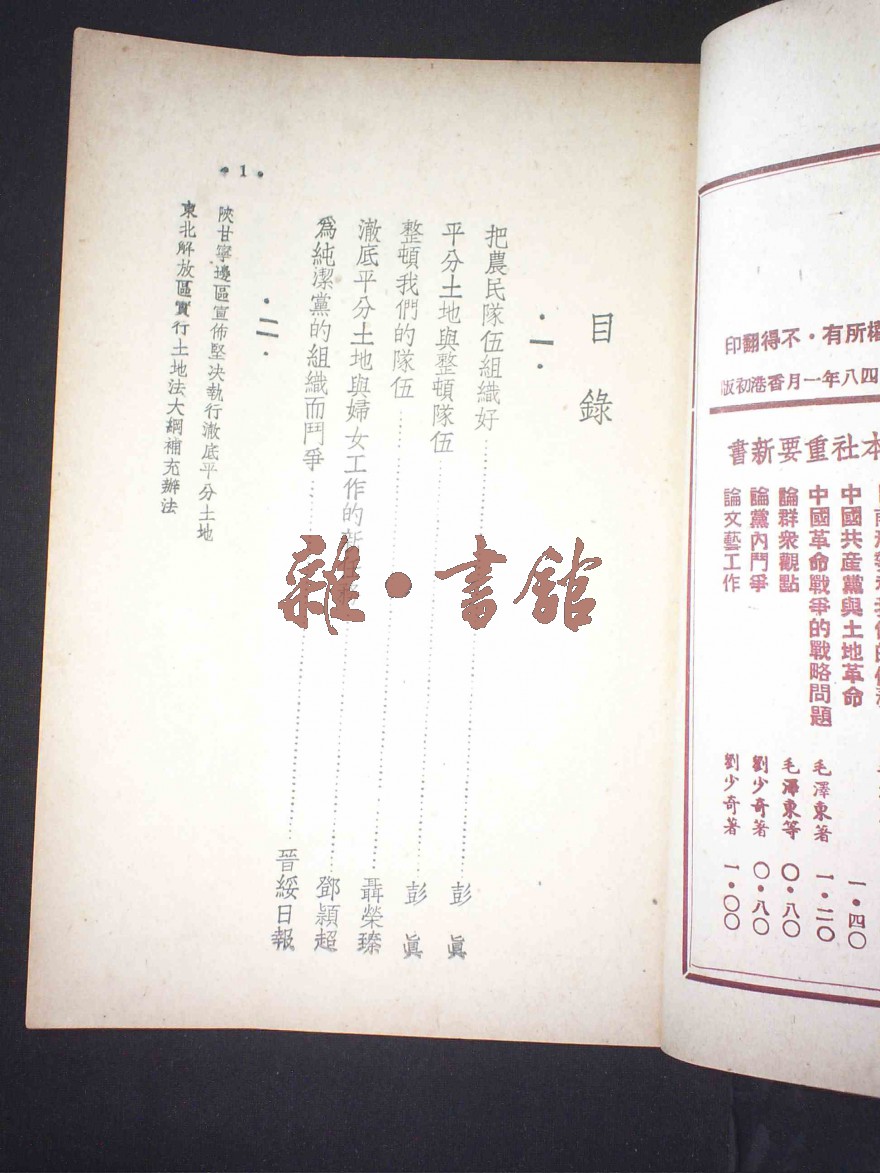 權所有・不得翻印
四八年一月香港初版
本社重要新書
中國共産黨與土地革命 一・四〇
中國革命戰爭的戰略問題 毛澤東著 一・二〇
論群衆觀點 毛澤東等 〇・八〇
論黨內鬥爭 劉少奇著 〇・八〇
論文藝工作 劉少奇著 一・〇〇
目錄
・一・
把農民隊伍組織好 彭眞
平分土地與整頓隊伍 彭眞
整頓我們的隊伍 聶榮臻
澈底平分土地與婦女工作的 鄧穎超
爲純潔黨的組織而鬥爭 晉綏日報
・二・
陝甘寧邊區宣佈堅决執行澈底平分土地
東北解放區實行土地法大綱補充辦法
・1・
雜・書館